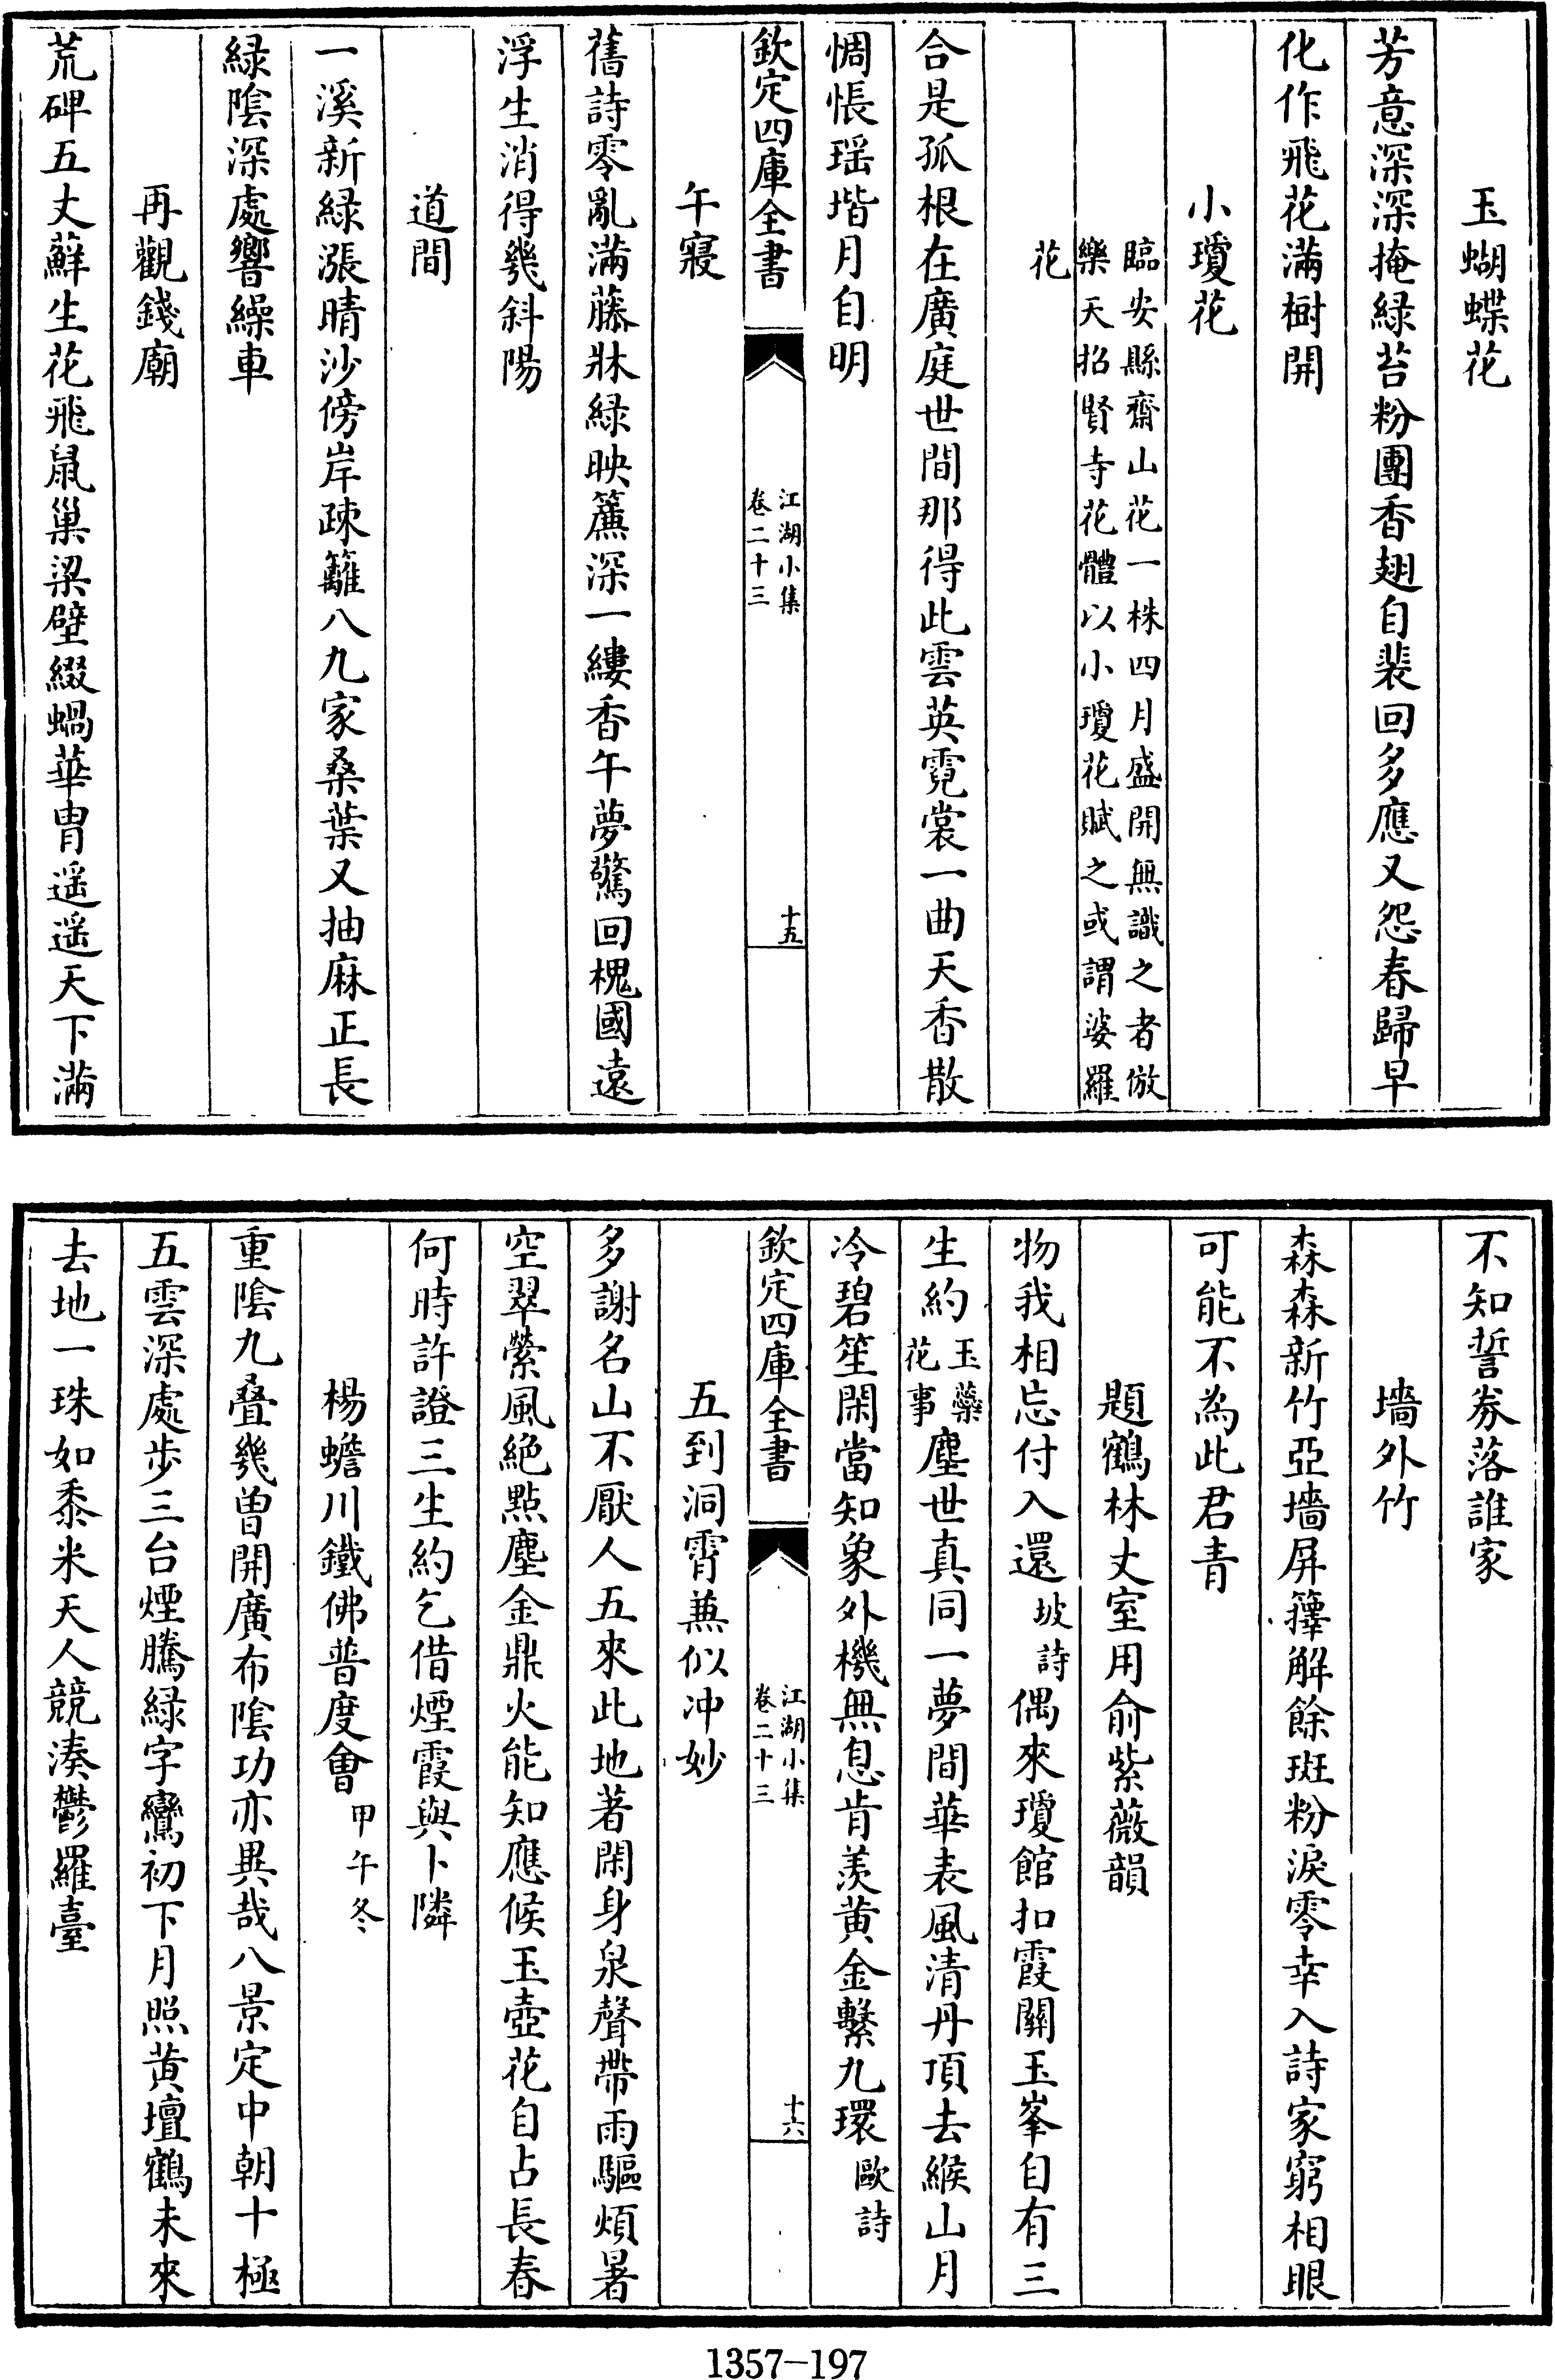 玉蝴蝶花
芳意深深掩緑苔粉團香翅自裴回多應又怨春歸早
化作飛花滿樹開
小瓊花
臨安縣齋山花一株四月盛開無識之者倣
樂天招賢寺花體以小瓊花賦之或謂娑羅
花
合是孤根在廣庭世間那得此雲英霓裳一曲天香散
惆悵瑶堦月自明
欽定四庫全書
江湖小集
卷二十三
十五
午寢
舊詩零亂滿藤牀緑映簾深一縷香午夢驚回槐國遠
浮生消得幾斜陽
道間
一溪新緑漲晴沙傍岸疎籬八九家桑葉又抽麻正長
緑陰深處響繰車
再觀錢廟
荒碑五丈蘚生花飛鼠巢梁壁綴蝸華胄遥遥天下滿
不知誓券落誰家
墻外竹
森森新竹亞墻屏籜解餘斑粉淚零幸入詩家窮相眼
可能不為此君青
題鶴林丈室用俞紫薇韻
物我相忘付入還坡詩偶來瓊館扣霞關玉峯自有三
生約玉蘂花事塵世真同一夢間華表風清丹頂去緱山月
冷碧笙閑當知象外機無息肯羡黄金繫九環歐詩
欽定四庫全書
江湖小集
卷二十三
十六
五到洞霄兼似冲妙
多謝名山不厭人五來此地著閑身泉聲帶雨驅煩暑
空翠縈風絶點塵金鼎火能知應候玉壺花自占長春
何時許證三生約乞借煙霞與卜隣
楊蟾川鐵佛普度會甲午冬
重陰九叠幾曽開廣布陰功亦異哉八景定中朝十極
五雲深處步三台煙騰緑字鸞初下月照黄壇鶴未來
去地一珠如黍米天人競湊鬱羅臺
1357-197